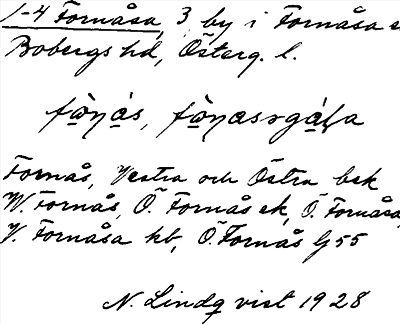 1-4 Fornåsa, 3 by i Fornåsa
Bobergs hd, Österg. l.
Fornås, Vestra och Östra bsk
W. Fornås, Ö. Fornås ek, Ö. Fornåsa,
V. Fornåsa kb, Ö. Fornås G 55
N. Lindqvist 1928